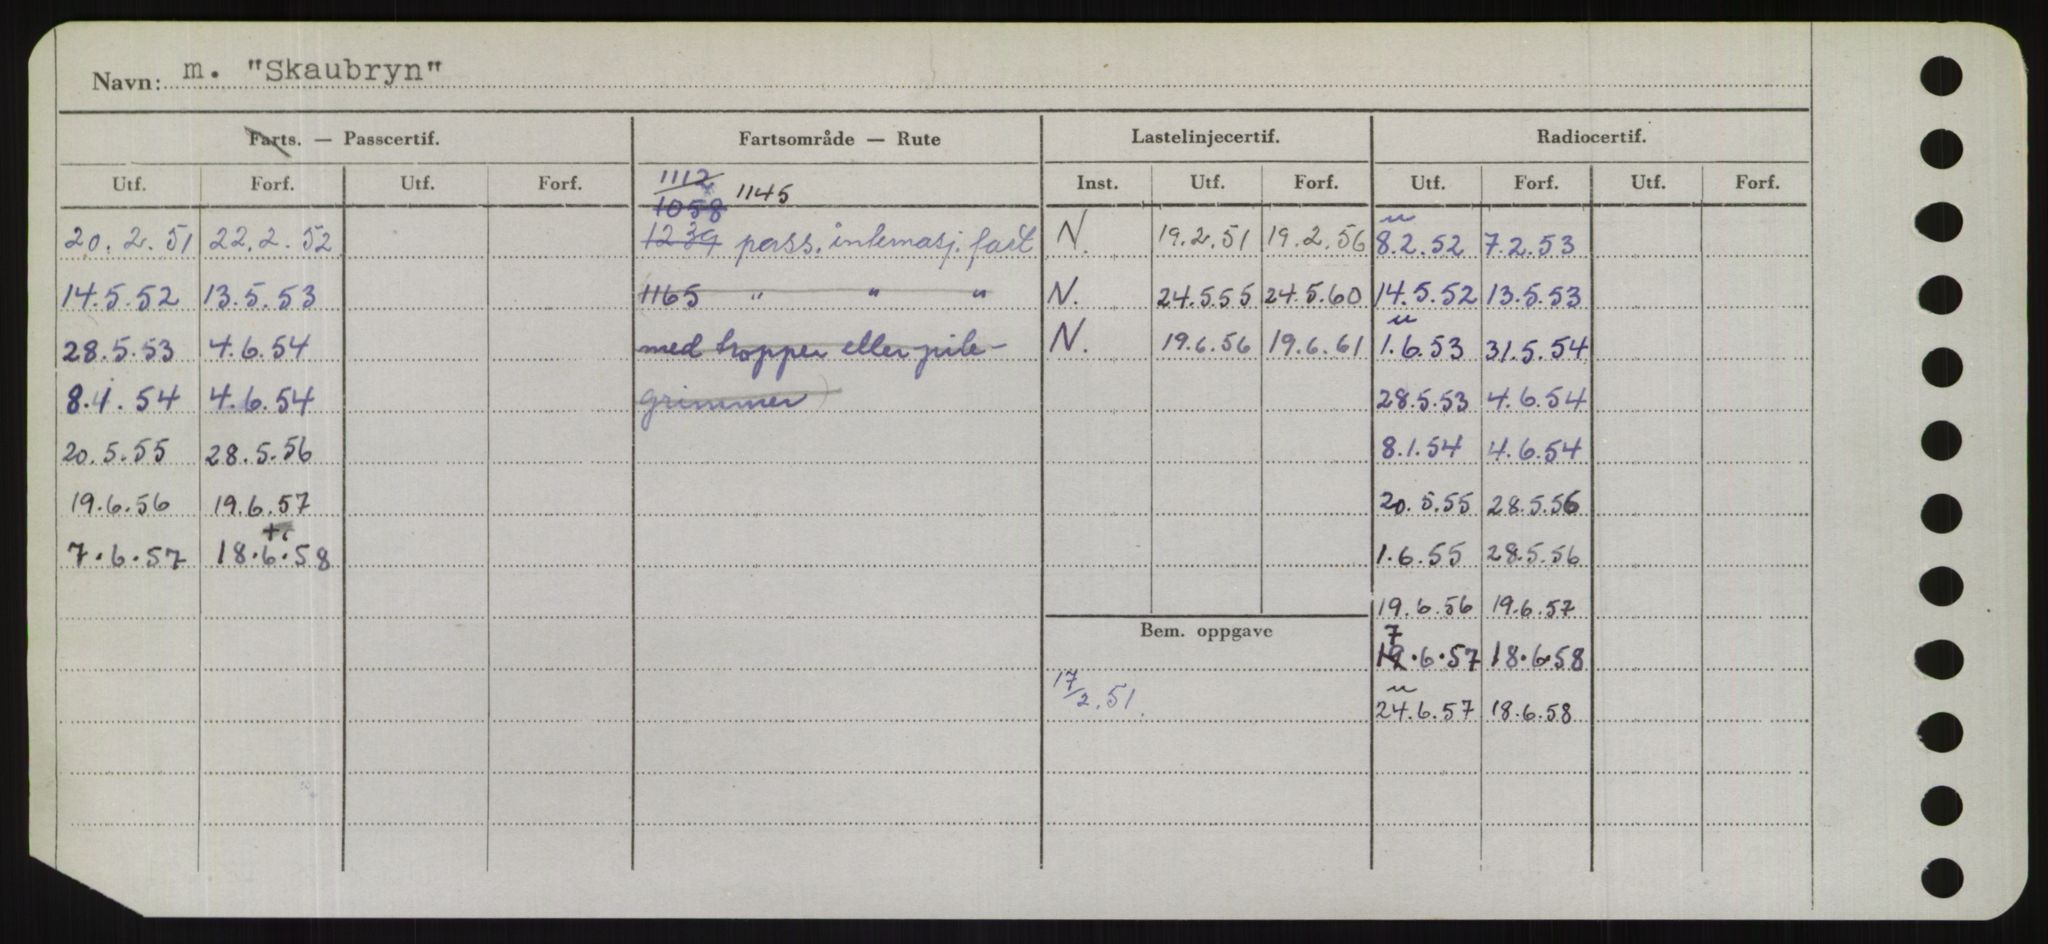 Navn: m. "Skaubryn"
Farts. — Passcertif. Fartsområde — Rute Lastelinjecertif. Radiocertif.
Utf. Forf. Utf. Forf. 1112 1145 Inst. Utf. Forf. Utf. Forf. Utf. Forf.
1058
20.2.51 22.2.52 1239 pass. internasj. fart N. 19.2.51 19.2.56 8.2.52 7.2.53
14.5.52 13.5.53 1165 " " " N. 24.5.55 24.5.60 14.5.52 13.5.53
28.5.53 4.6.54 med tropper eller pile- N. 19.6.56 19.6.61 1.6.53 31.5.54
8.1.54 4.6.54 grimmer) 28.5.53 4.6.54
20.5.55 28.5.56 8.1.54 4.6.54
19.6.56 19.6.57 20.5.55 28.5.56
7.6.57 18.6.58 1.6.55 28.5.56
19.6.56 19.6.57
Bem. oppgave 7
19.6.57 18.6.58
17/2.51. 24.6.57 18.6.58